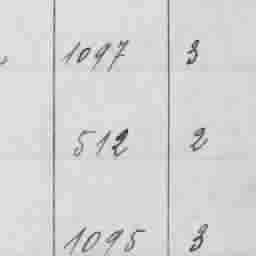 1097 3
512 2
1095 3